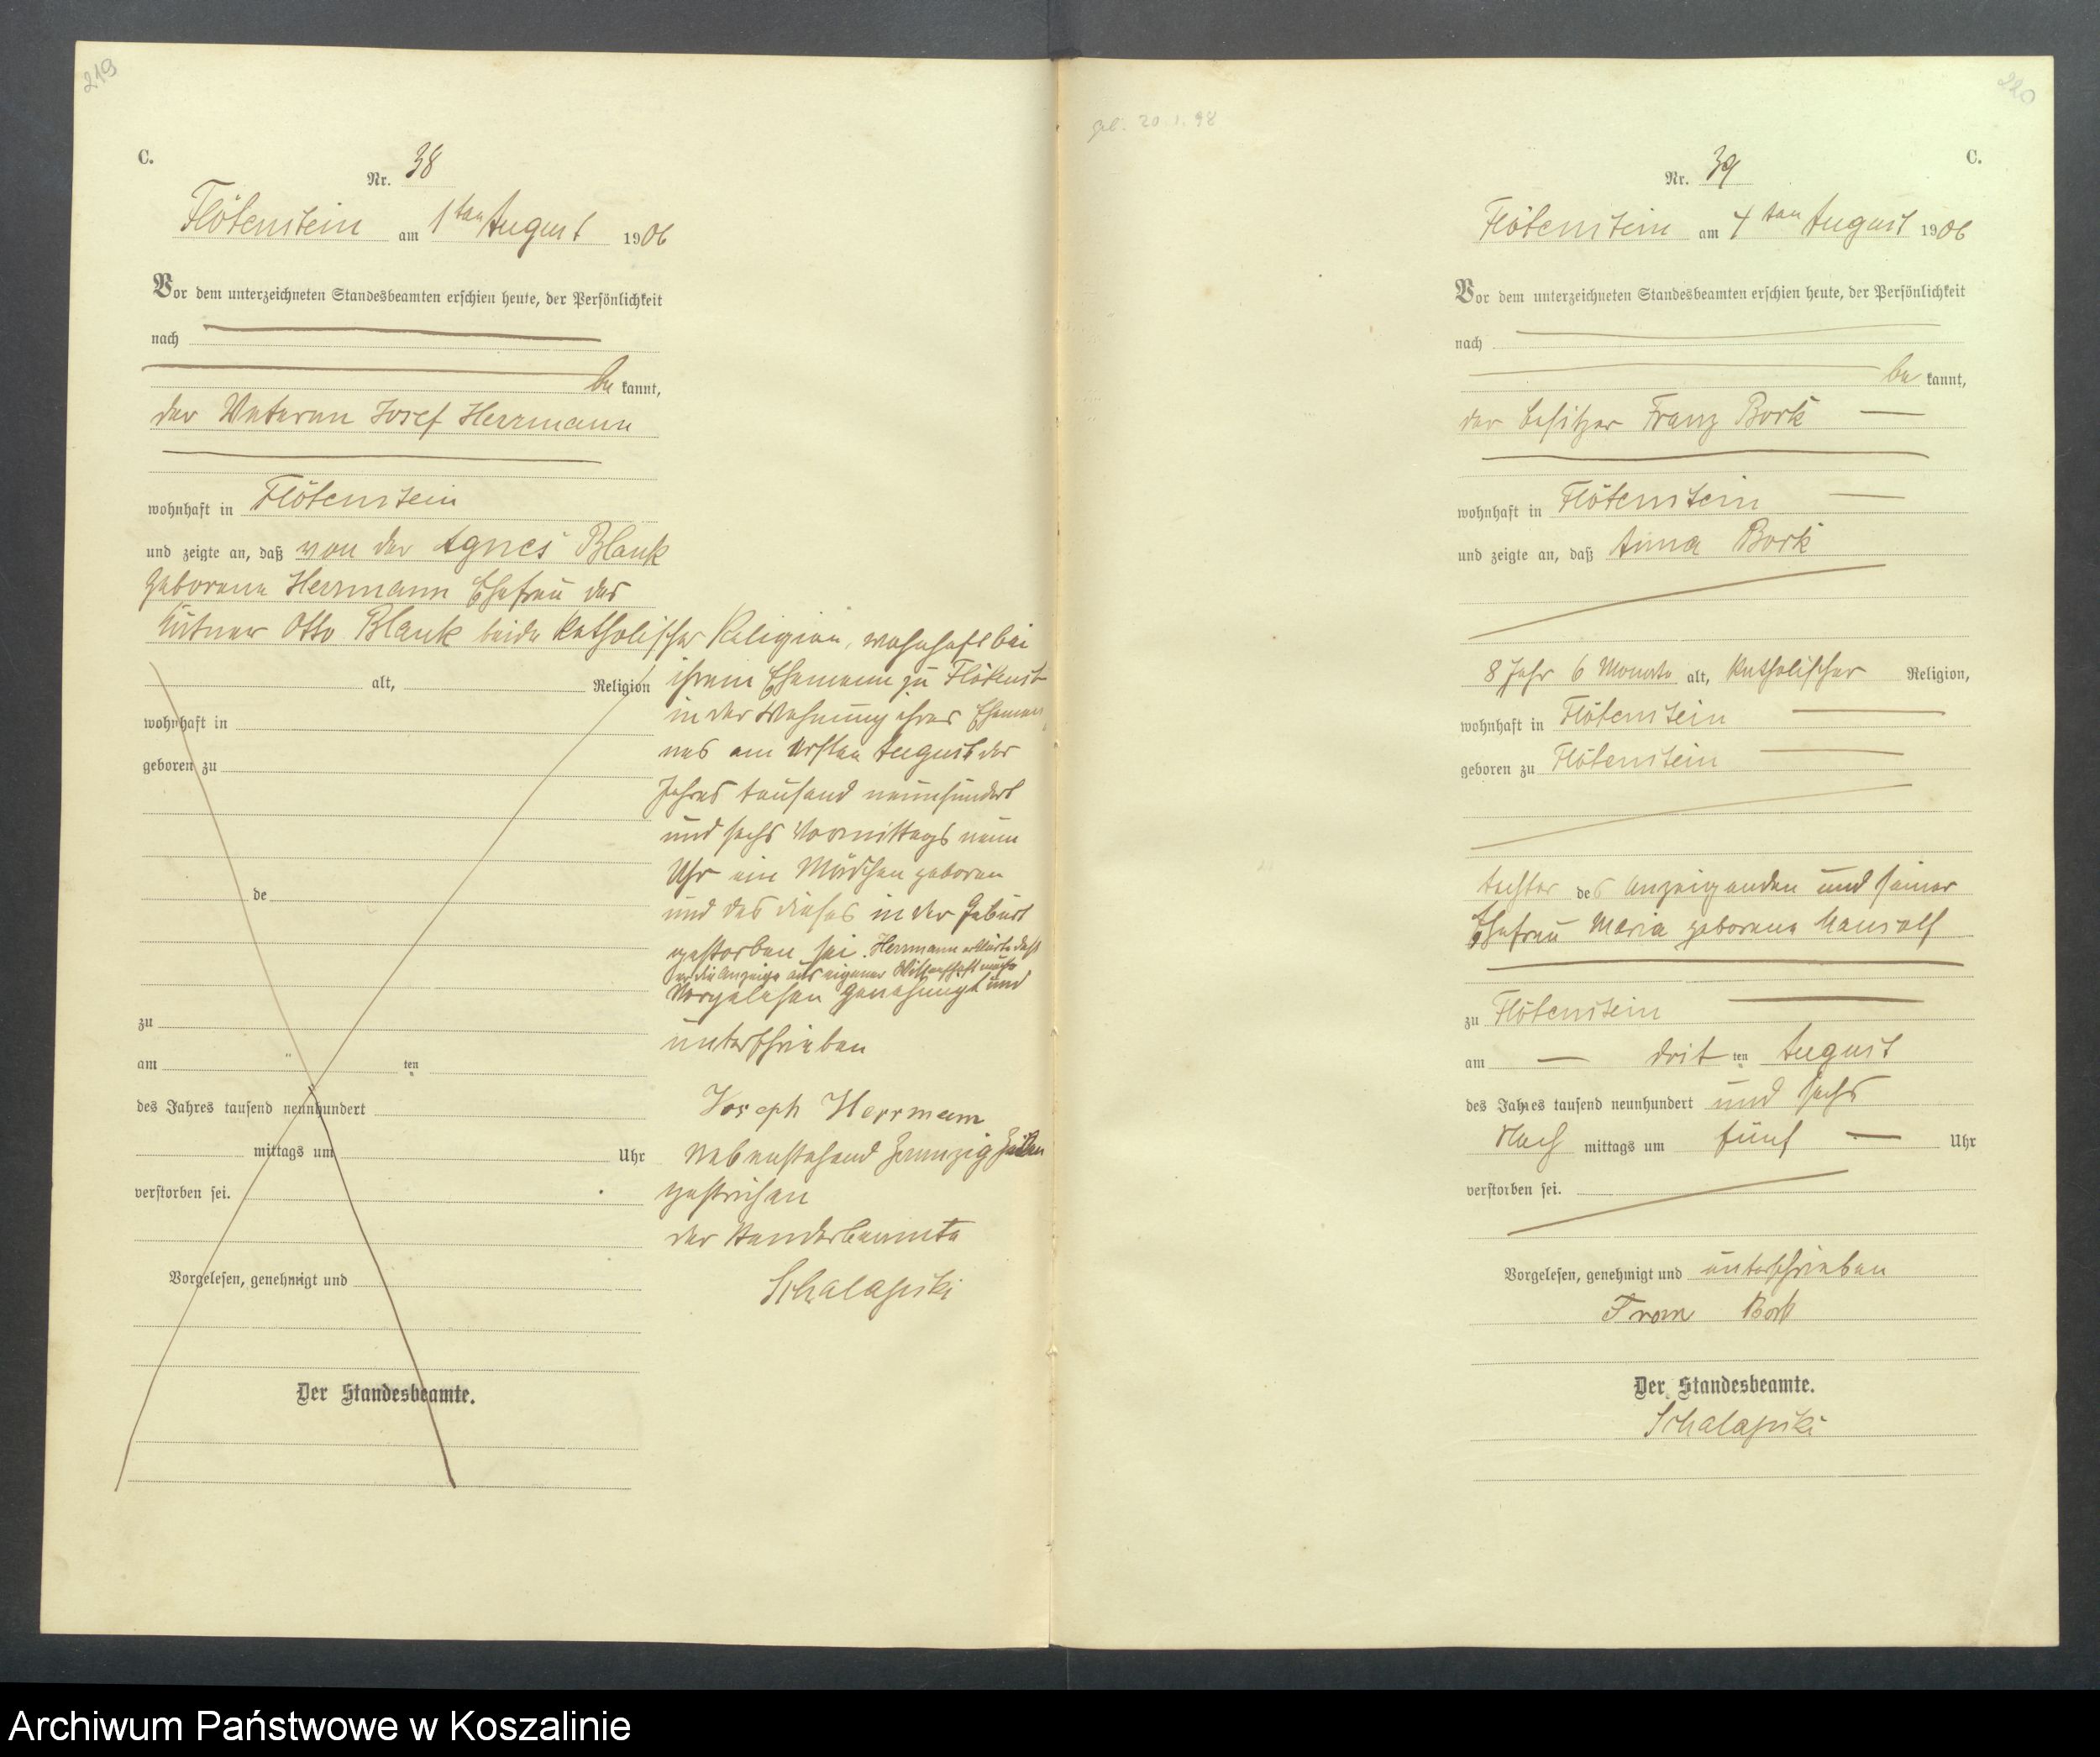 219
C.
Nr. 38
Flötenstein am 1ten August 1906
Vor dem unterzeichneten Standesbeamten erschien heute, der Persönlichkeit
nach
be kannt,
der Veteran Josef Herrmann
wohnhaft in Flötenstein
und zeigte an, daß von der Agnes Blank
geborene Herrmann Ehefrau des
Otto Blank beide katholischer Religion, wohnhaft bei
alt, Religion ihrem Ehemann zu Flötenst
wohnhaft in in der Wohnung ihres Eheman
geboren zu nes am ersten August des
Jahres tausend neunhundert
und sechs Vormittags neun
Uhr ein Mädchen geboren
de und das dieses in der Geburt
gestorben sei. Herrmann erklärte daß
er die Anzeige aus eigener Wissenschaft mache
Vorgelesen genehmigt und
zu unterschrieben
am ten
des Jahres tausend neunhundert Joseph Herrmann
mittags um Uhr Nebenstehend zwanzig Zeilen
verstorben sei. gestrichen
der Standesbeamte
Vorgelesen, genehmigt und Schalapski
Der Standesbeamte.
220
geb. 20.1.98
C.
Nr. 39
Flötenstein am 4ten August 1906
Vor dem unterzeichneten Standesbeamten erschien heute, der Persönlichkeit
nach
be kannt,
der Besitzer Franz Bork
wohnhaft in Flötenstein
und zeigte an, daß Anna Bork
8 Jahr 6 Monate alt, katholischer Religion,
wohnhaft in Flötenstein
geboren zu Flötenstein
Tochter des Anzeigenden und seiner
Ehefrau Maria geborene
zu Flötenstein
am drit ten August
des Jahres tausend neunhundert und sechs
Nach mittags um fünf Uhr
verstorben sei.
Vorgelesen, genehmigt und unterschrieben
Franz Bork
Der Standesbeamte.
Schalapski
Archiwum Państwowe w Koszalinie